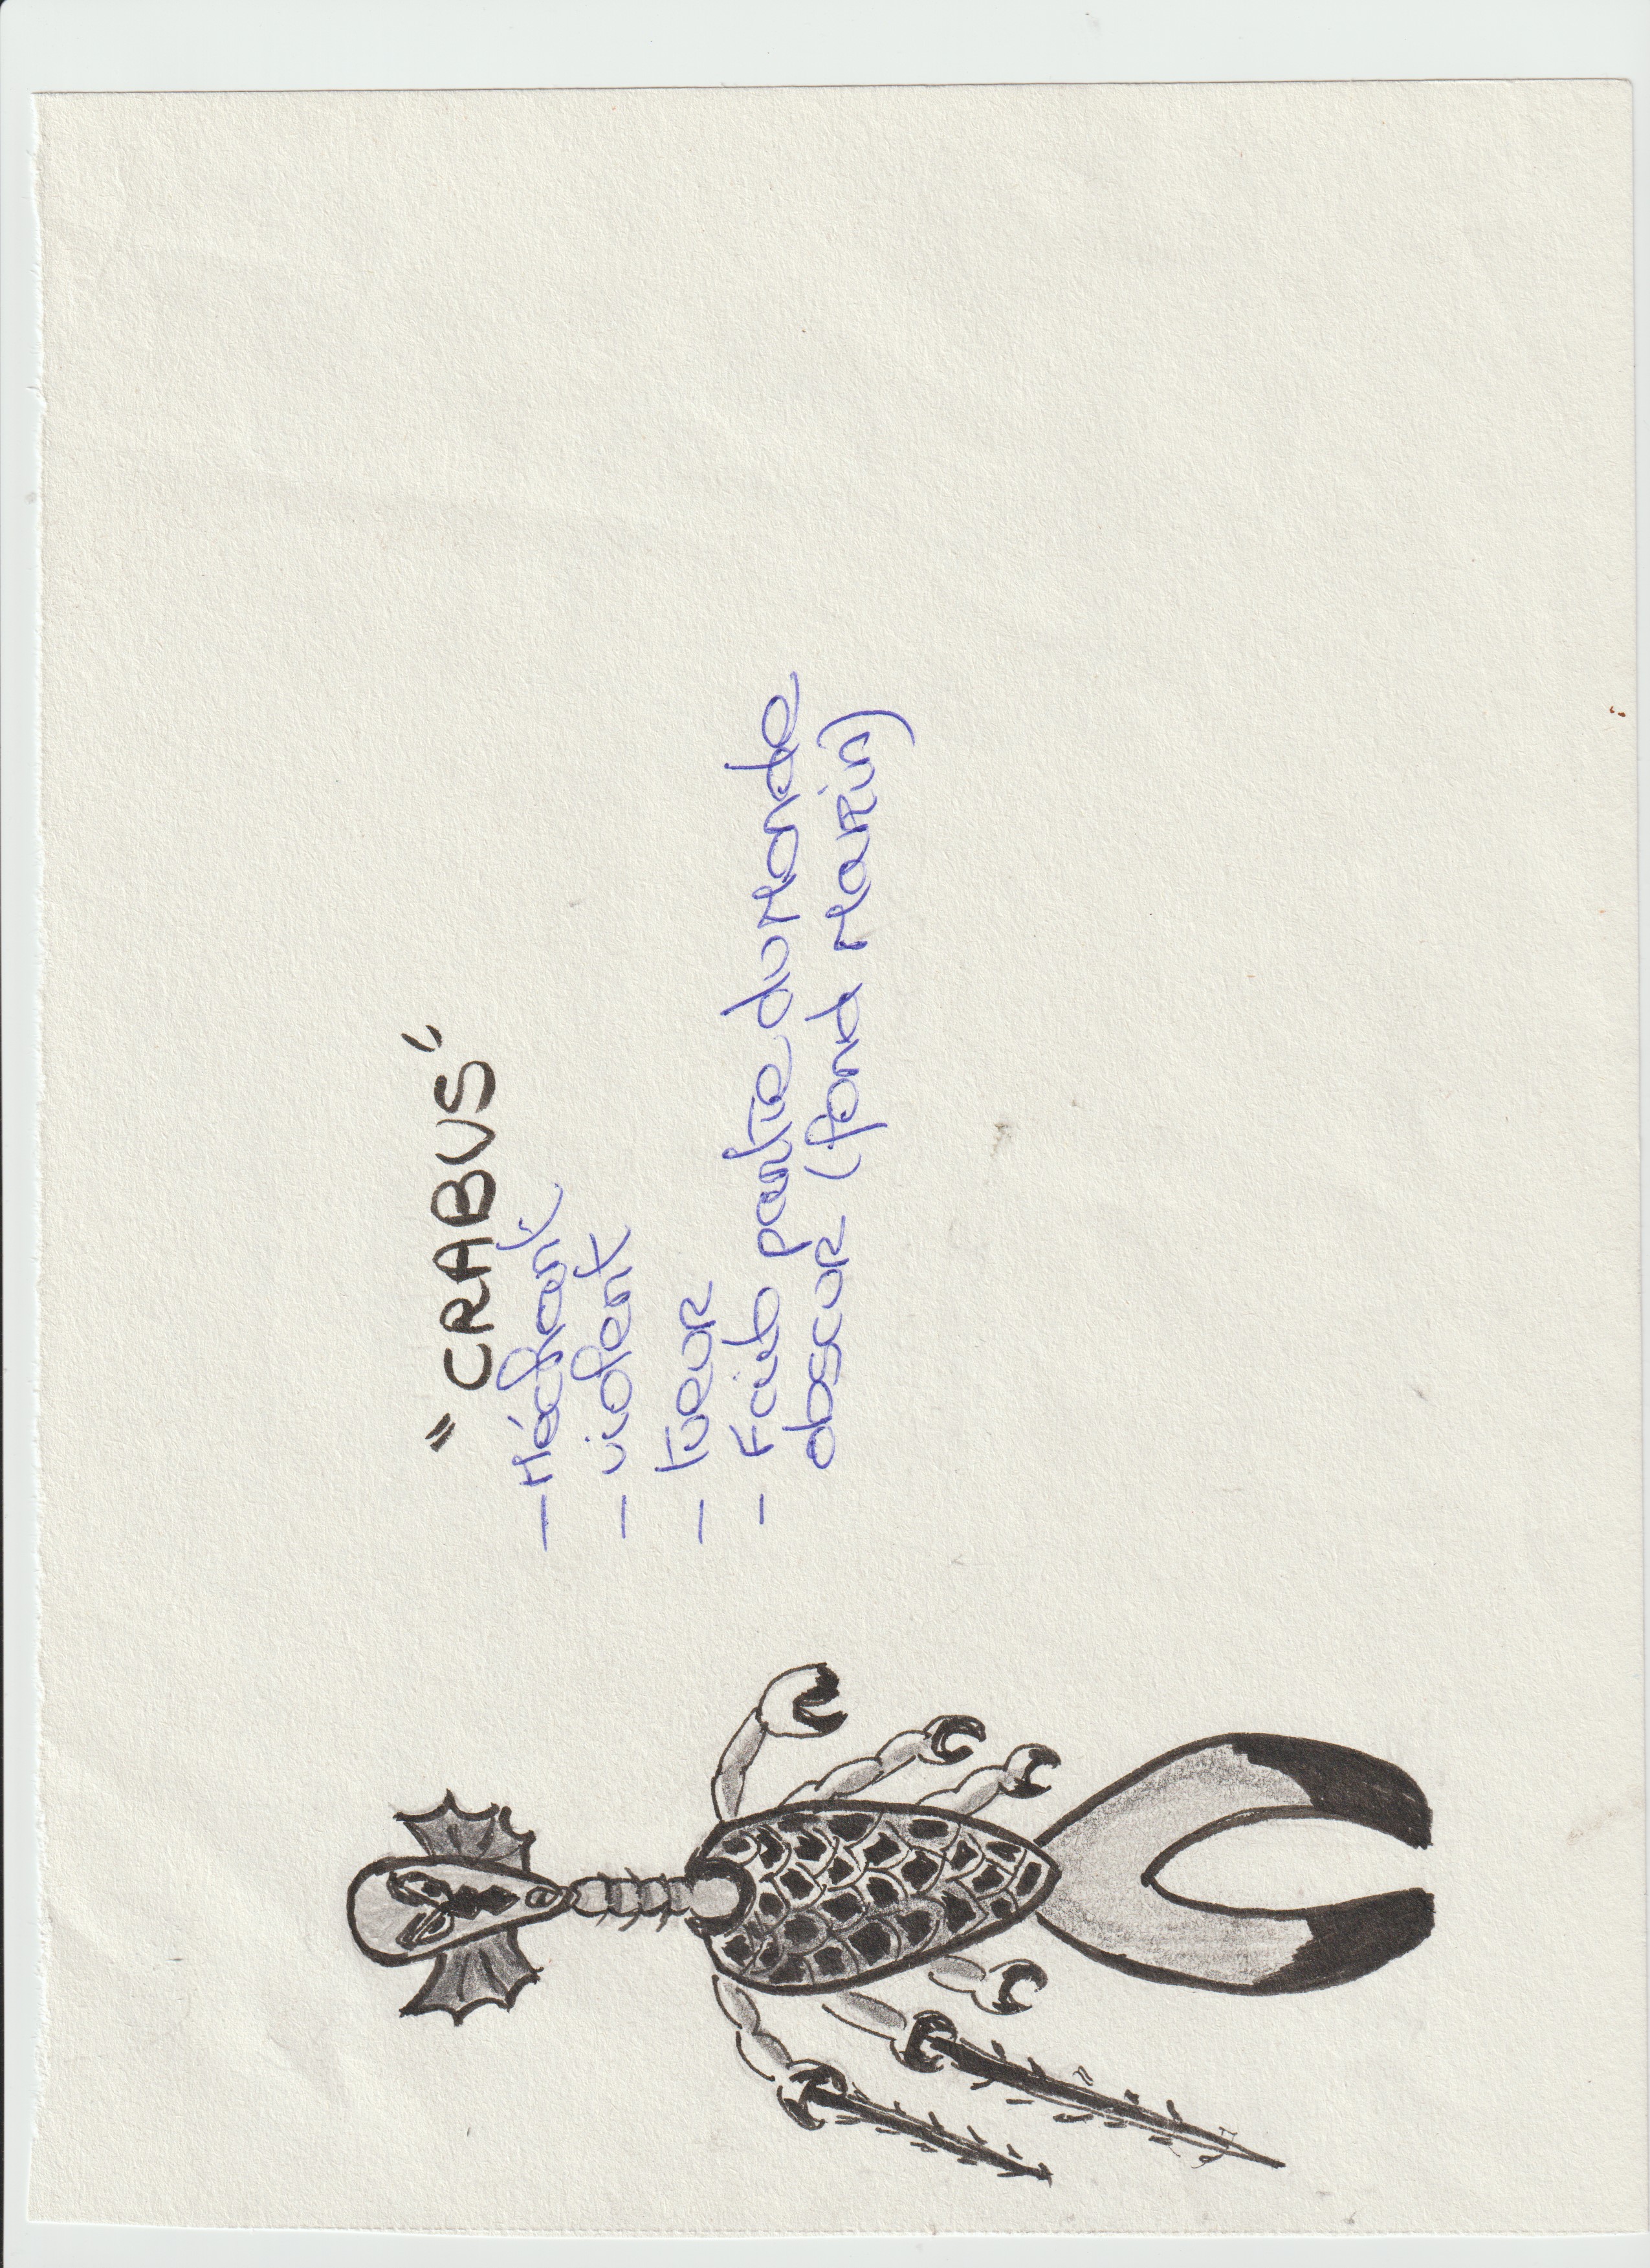 "CRABUS"
- Méchant
- violent
- tueur
- Fait partie du monde
obscur (fond marin)